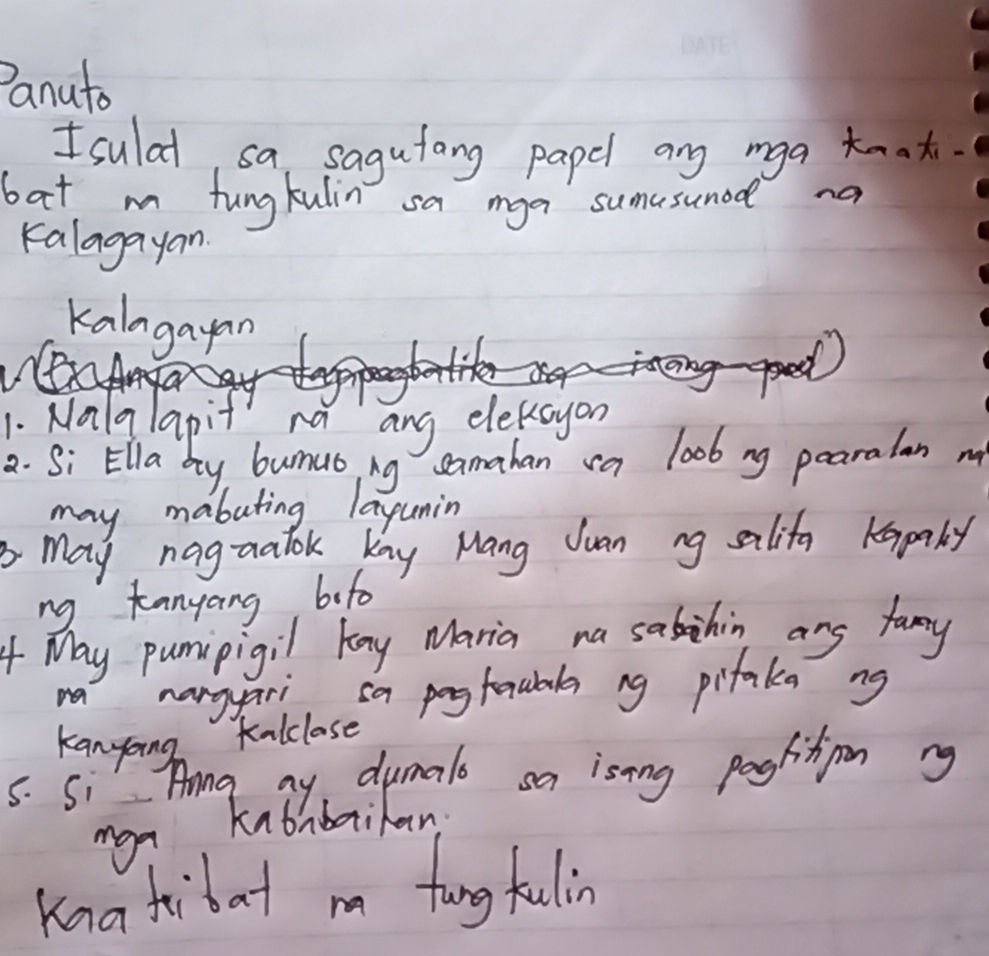 DATE
Panuto
Isulat sa sagutang papel ang mga kaaki-
bat na tungkulin sa mga sumusunod na
Kalagayan.
Kalagayan
1. Nalalapit na ang eleksyon
2. Si Ella ay bumuo ng samahan sa loob ng paaralan na
may mabuting layunin
3. May nag-aalok kay Mang Juan ng salita kapalit
ng kanyang boto
4 May pumipigil kay Maria na sabihin ang tamang
na nangyari sa pagkawala ng pitaka ng
kanyang kaklase
5. Si Anna ay dumalo sa isang pagtitipon ng
mga kababaihan.
Kaakibat na tungkulin